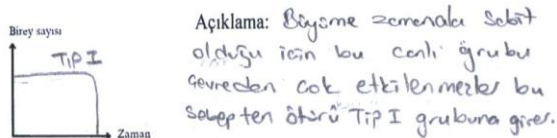 Birey sayısı
TİP I
Zaman
Açıklama: Büyüme zamanala Sabit
olduğu için bu canlı grubu
Çevreden çok etkilenmezler bu
sebepten ötürü Tip I grubuna girer.